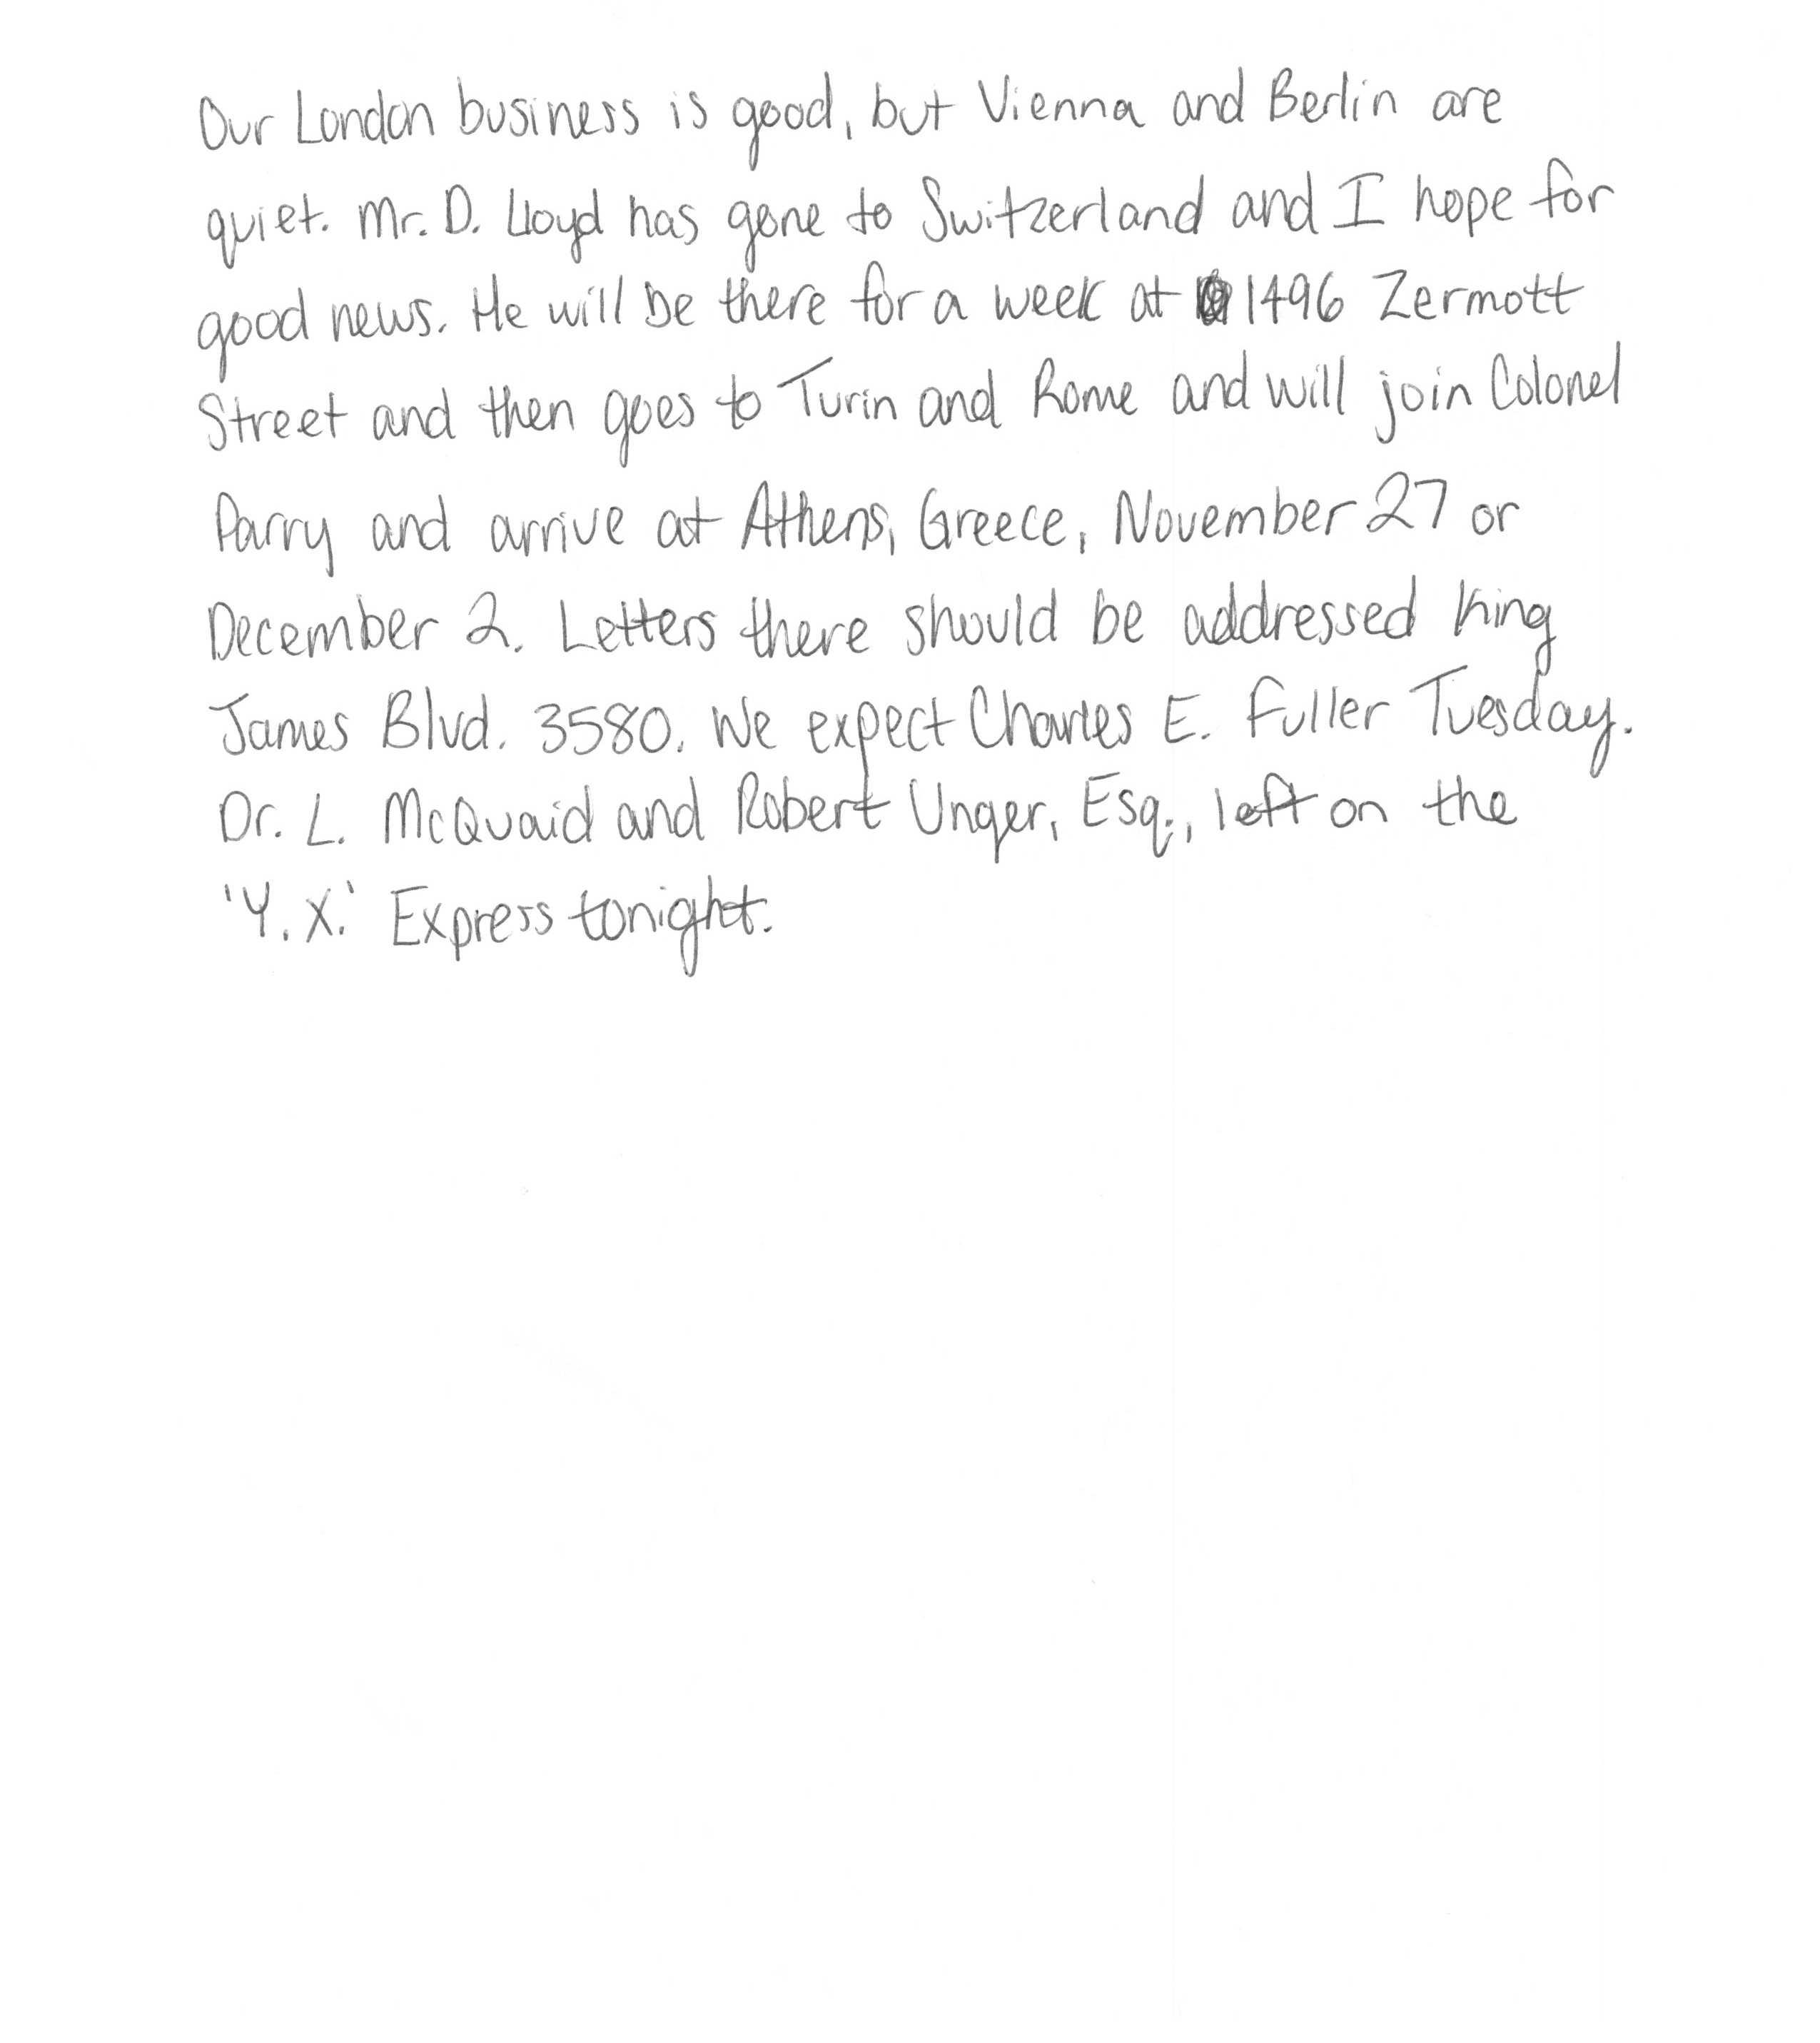 Our London business is good, but Vienna and Berlin are
quiet. Mr. D. Lloyd has gone to Switzerland and I hope for
good news. He will be there for a week at 1496 Zermott
Street and then goes to Turin and Rome and will join Colonel
Parry and arrive at Athens, Greece, November 27 or
December 2. Letters there should be addressed King
James Blvd. 3580. We expect Charles E. Fuller Tuesday.
Dr. L. McQuaid and Robert Unger, Esq., left on the
'Y.X.' Express tonight.